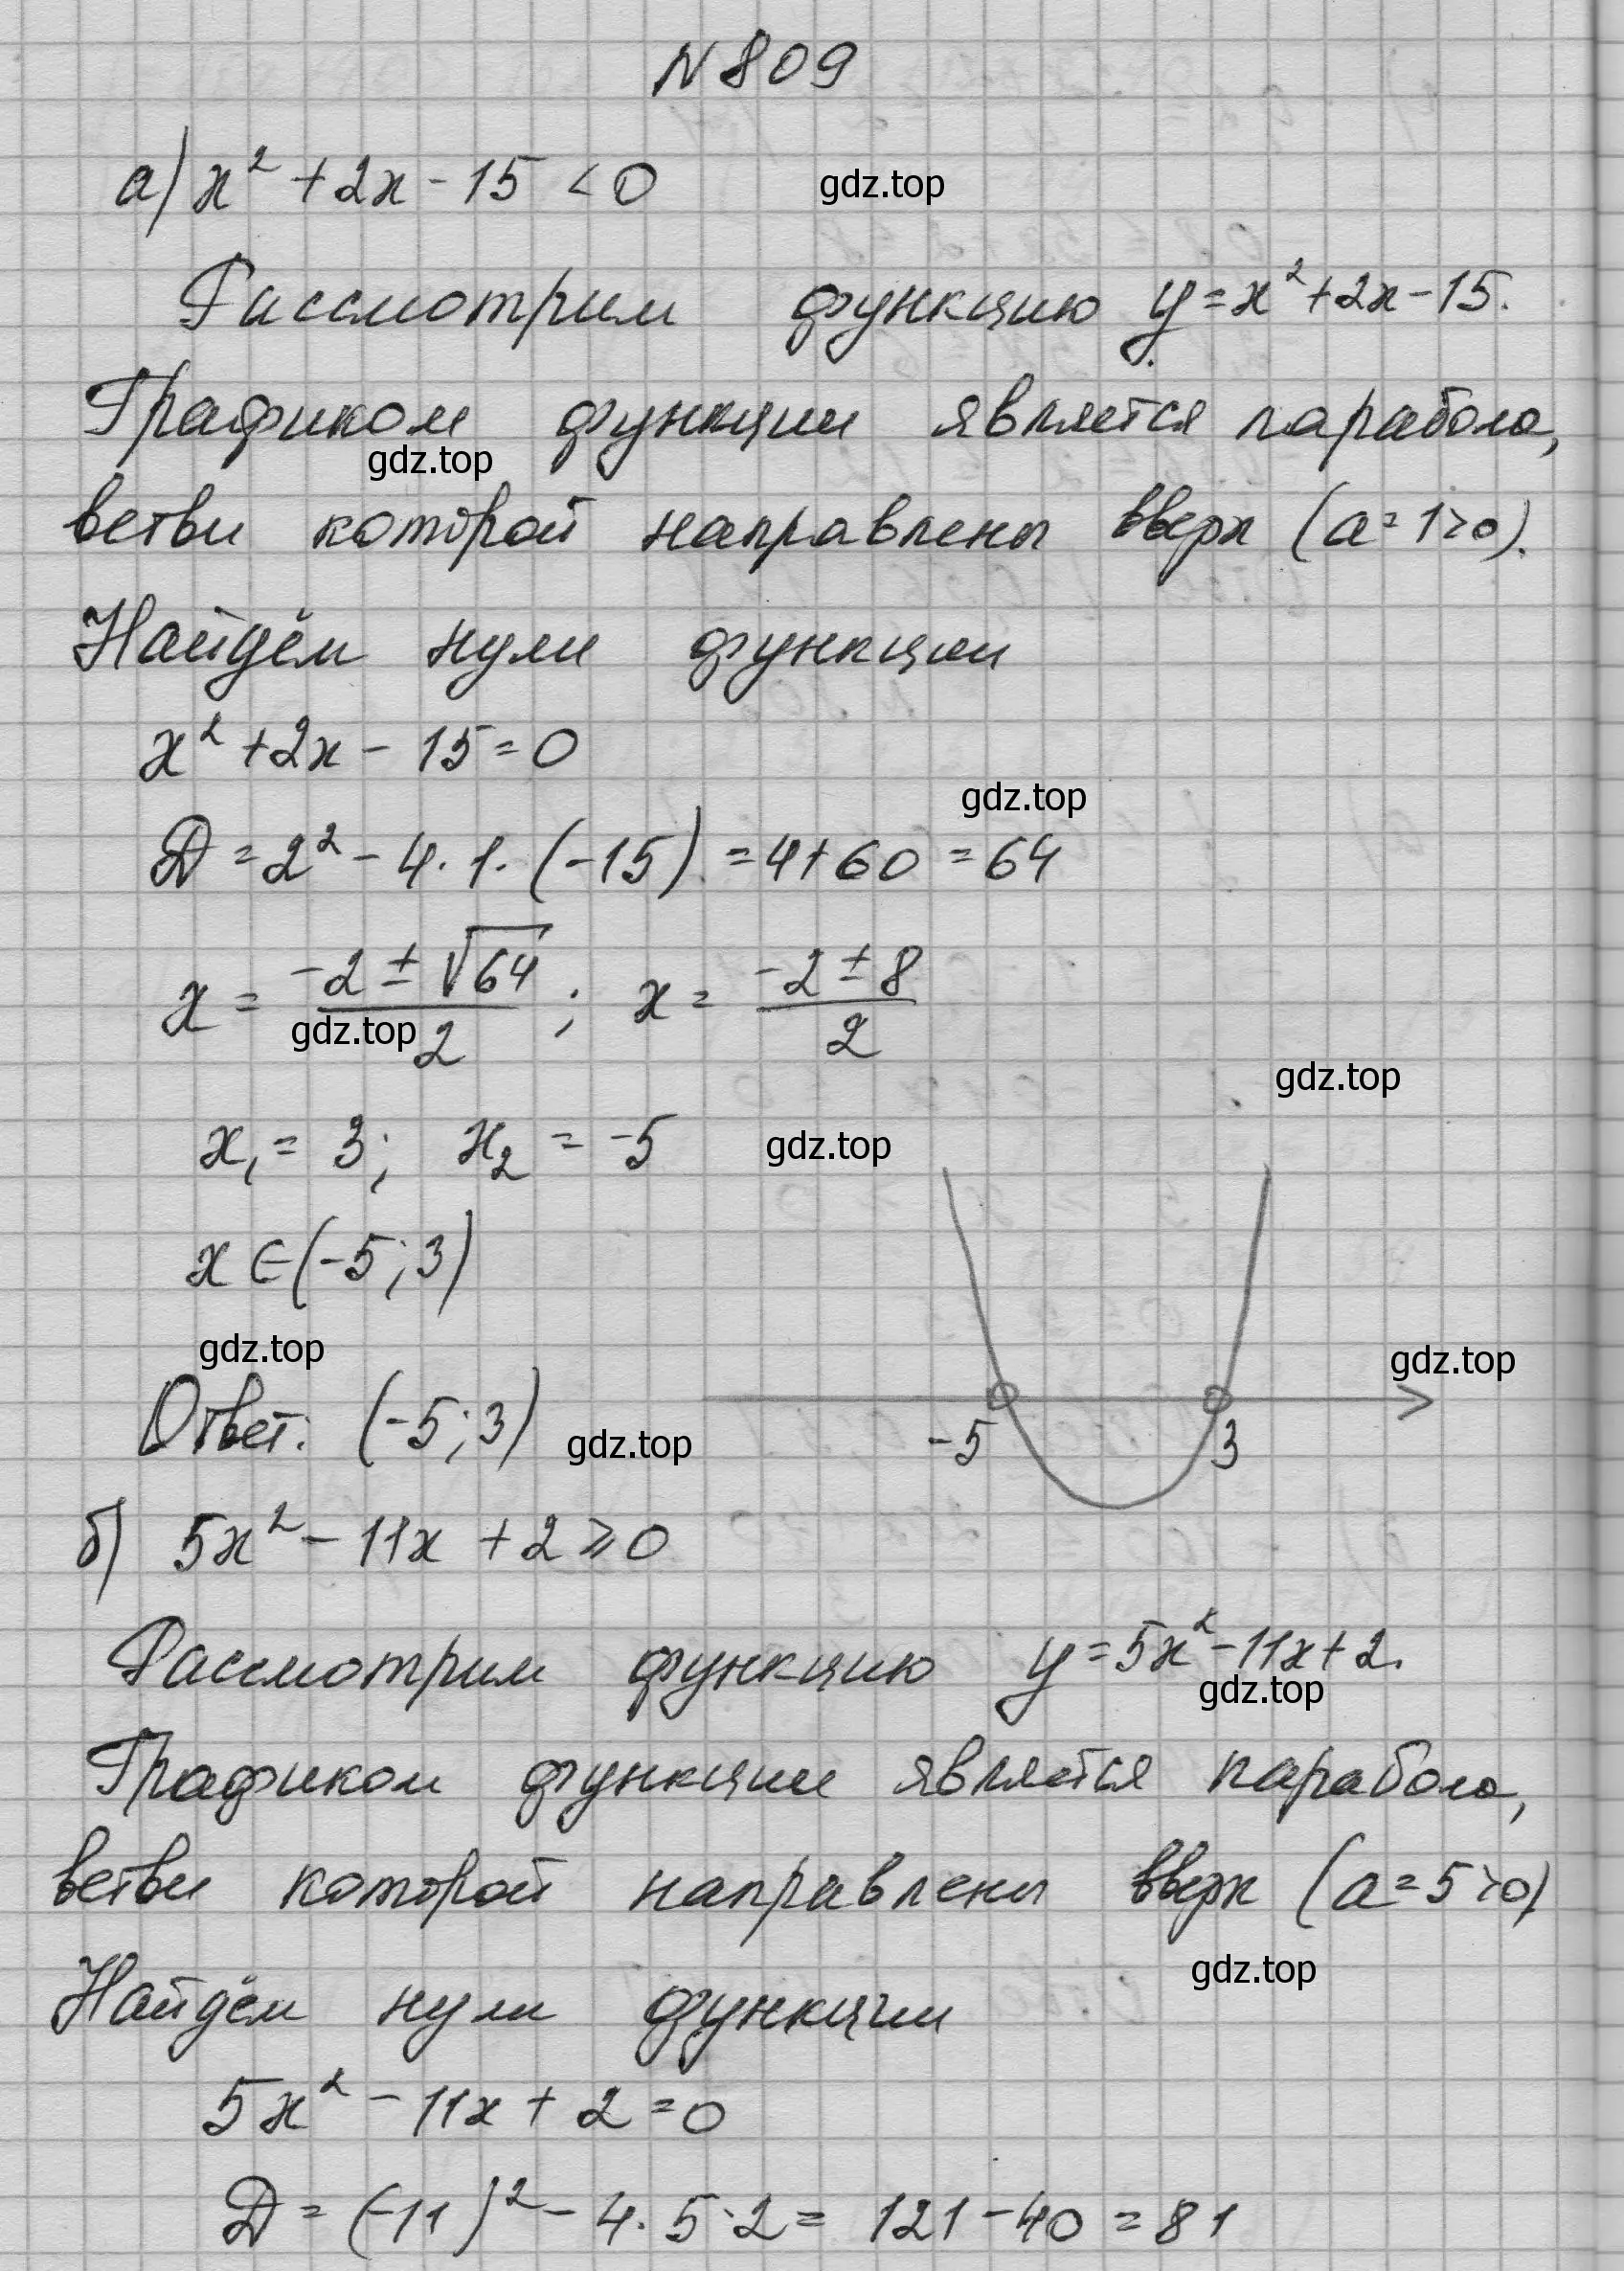 N 809
а) x² + 2x - 15 < 0
gdz.top
Рассмотрим функцию y = x² + 2x - 15.
Графиком функции является парабола,
gdz.top
ветви которой направлены вверх (a = 1 > 0).
Найдём нули функции
x² + 2x - 15 = 0
gdz.top
D = 2² - 4 · 1 · (-15) = 4 + 60 = 64
x = (-2 ± √64)/2 ; x = (-2 ± 8)/2
gdz.top
gdz.top
x₁ = 3; x₂ = -5
gdz.top
x ∈ (-5; 3)
gdz.top
gdz.top
Ответ: (-5; 3)
gdz.top
-5 3
б) 5x² - 11x + 2 ⩾ 0
Рассмотрим функцию y = 5x² - 11x + 2.
gdz.top
Графиком функции является парабола,
ветви которой направлены вверх (a = 5 > 0)
gdz.top
Найдём нули функции
5x² - 11x + 2 = 0
D = (-11)² - 4 · 5 · 2 = 121 - 40 = 81